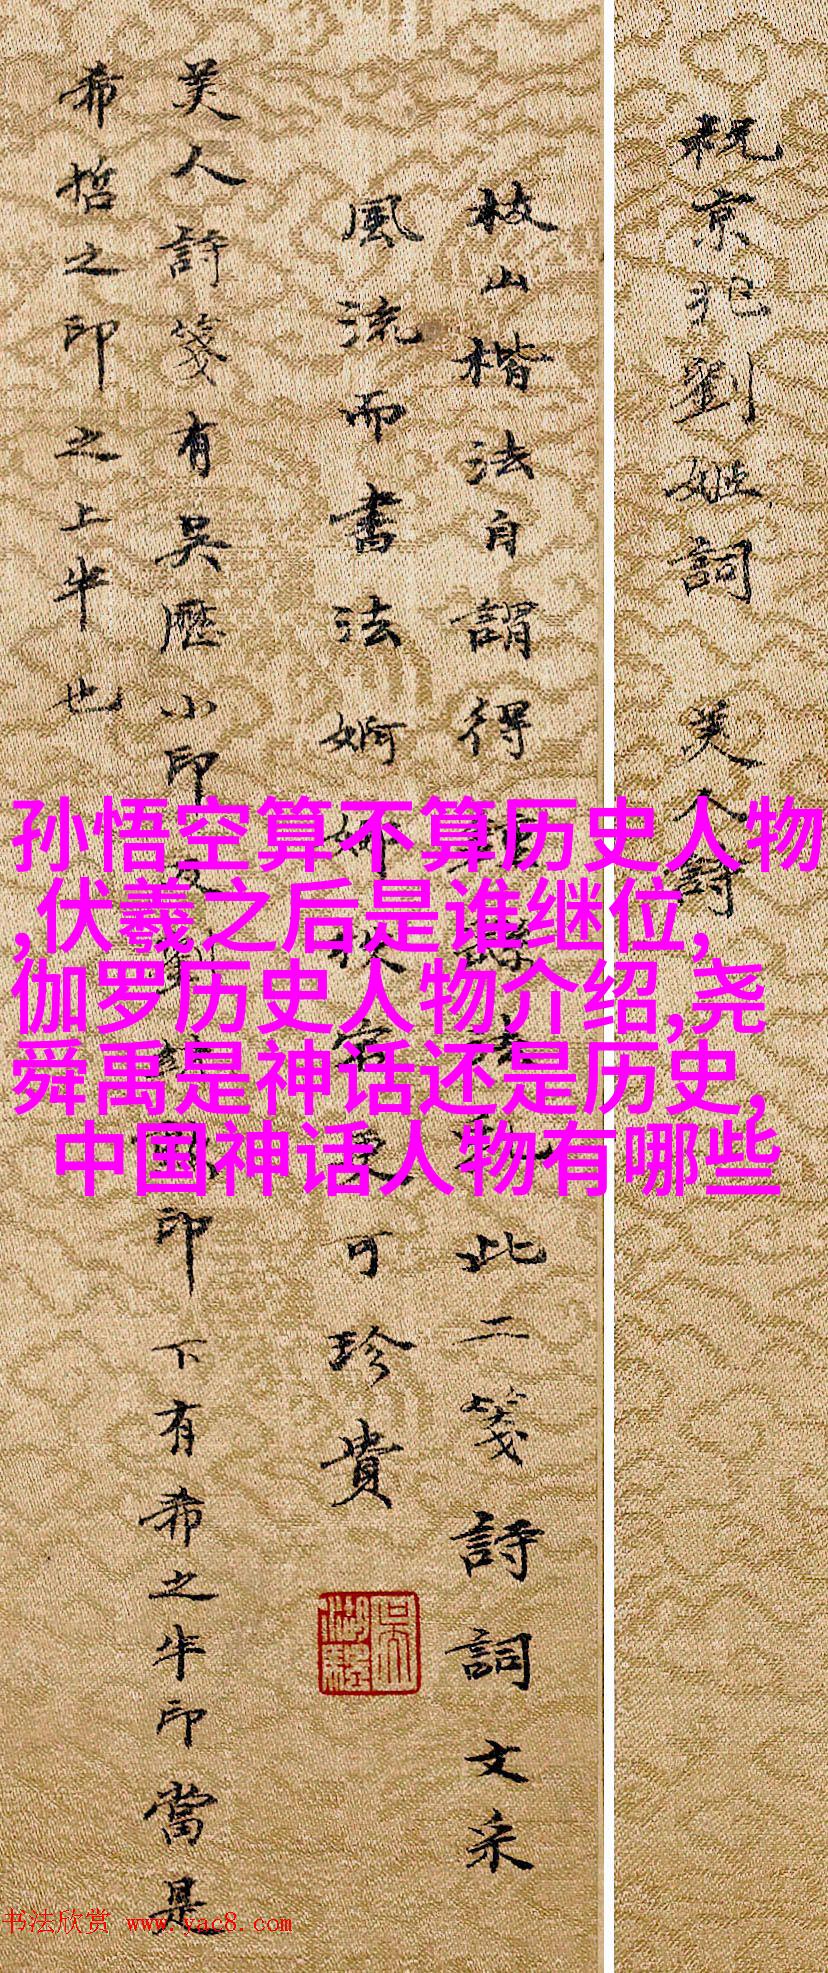 祝京兆劉姬詞 美人詩
枝山楷法自謂得 此二箋詩詞文采
風流而書法婀娜 可珍貴
美人詩箋有吳歷小印 印下有希之半印當是
希哲之印之上半也
孙悟空算不算历史人物
,伏羲之后是谁继位,
伽罗历史人物介绍,尧
舜禹是神话还是历史,
中国神话人物有哪些
书法欣赏 www.yac8.com